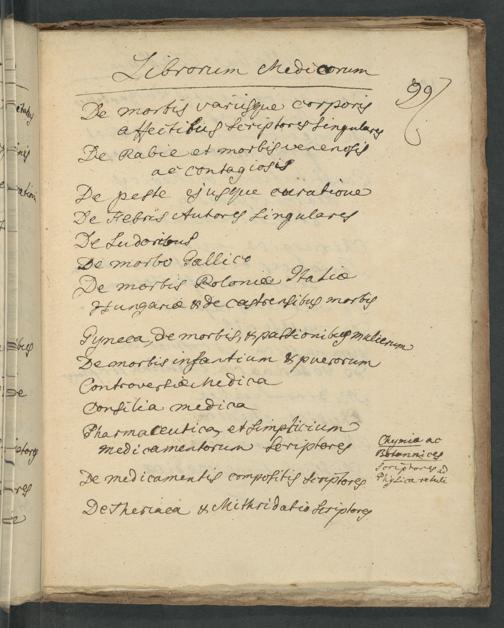 Librorum Medicorum
99
De morbis variisque corporis
affectibus scriptores singulares
De Rabie et morbis venenosis
ac contagiosis
De peste ejusque curatione
De Febris Autores singulares
De Sudoribus
De morbo Gallico
De morbis Poloniæ Italiæ
Hungariæ & de castrensibus morbis
Gyneca, de morbis, & passionibus mulierum
De morbis infantium & puerorum
Controversiæ Medica
Consilia medica
Pharmaceutica, et simplicium
medicamentorum scriptores
Chymiæ ac
Botannices
scriptores ad
Physica
De medicamentis compositis scriptores
De Theriaca & Mithridatio scriptores